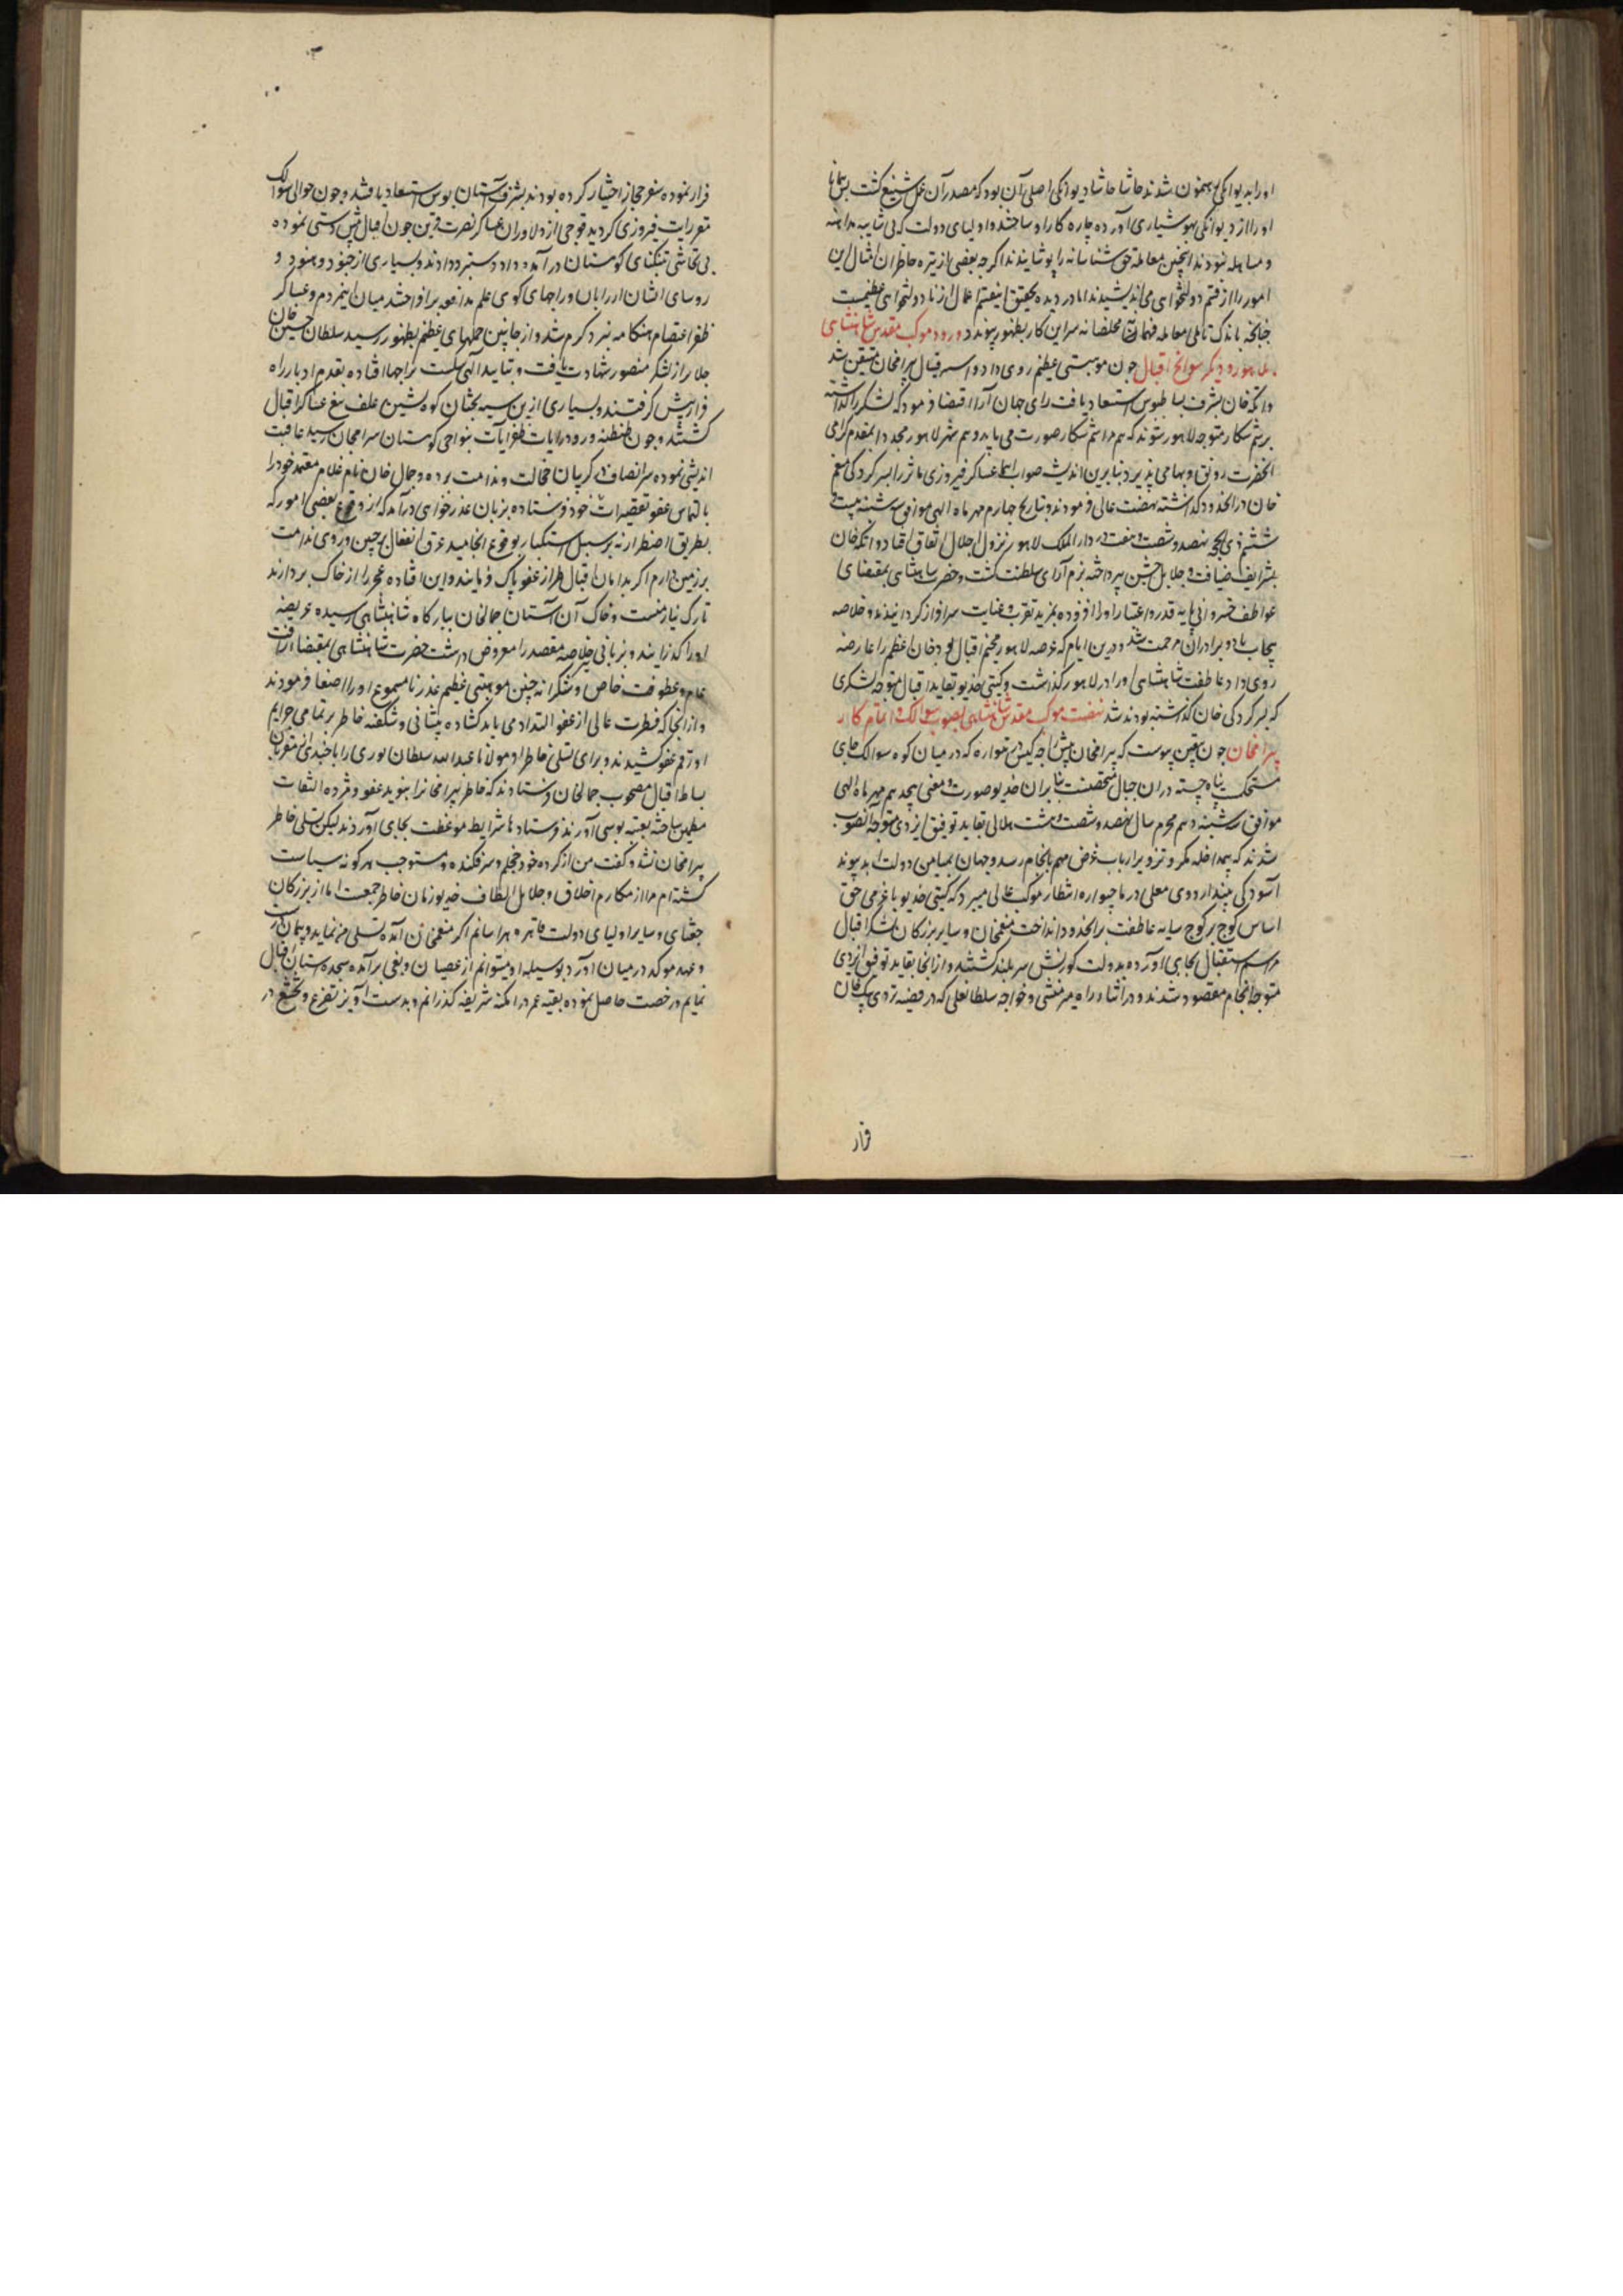 او را بدیوانگی رهنمون شدند حاشا حاشا دیوانگی اصلی آن بود که مصدر آن عمل شنیع گشت بس همانا
او را از دیوانگی بهوشیاری آورده چاره کار او ساختند و اولیای دولت که بی شایبه مداهنه
و مساهله نبودند اینچنین معامله حق شناسانه را پوشانیدند اگرچه بعضی از تیره خاطران امثال این
امور را از قسم دولتخواهی می اندیشیدند اما در دیده تحقیق اینقسم اعمال از نادولتخواهی عظیمست
چنانچه باندک تاملی معامله فهمان مخلصانه سر این کار بظهور پیوندد ورود موکب مقدس شاهنشاهی
بلاهور و دیگر سوانح اقبال چون موهبتی عظیم روی داد و اسر قبال بیرامخان متیقن شد
و اتکه خان بشرف بساط بوس استسعاد یافت رای جهان آرا اقتضا فرمود که لشکر را گذاشته
برسم شکار متوجه لاهور شوند که هم مراسم شکار صورت می یابد و هم شهر لاهور مجددا بمقدم گرامی
آنحضرت رونق و بها می پذیرد بنابرین اندیشه صواب عساکر فیروزی ماثر را بسرکردگی منعم
خان در آنحدود گذاشته نهضت عالی فرمودند و بتاریخ چهارم مهر ماه الهی موافق سه شنبه بیست و
ششم ذی الحجه نهصد و شصت و هفت در دارالملک لاهور نزول اجلال اتفاق افتاد و اتکه خان
بشرایف ضیافت و جلایل جشن پرداخته بزم آرای سلطنت گشت و حضرت شاهنشاهی بمقتضای
عواطف خسروانی پایه قدر و اعتبار او را افزوده بمزید تقرب و عنایت سرافراز گردانیدند و خلاصه
پنجاب باو و برادران او مرحمت شد و درین ایام که عرصه لاهور مخیم اقبال بود خان اعظم را عارضه
روی داد عاطفت شاهنشاهی او را در لاهور گذاشت و گیتی خدیو بتایید اقبال متوجه لشکری
که بسرکردگی خان گذاشته بودند شد نهضت موکب مقدس شاهنشاهی بصوب سوالک و اتمام کار
بیرامخان چون بیقین پیوست که بیرامخان پیش راجه گنیش در تلواره که در میان کوه سوالک جای
مستحکم پناه جسته در آن جبال متحصنست بنابران خدیو صورت و معنی هیجدهم مهر ماه الهی
موافق سه شنبه دهم محرم سال نهصد و شصت و هشت هلالی بتایید توفیق ایزدی متوجه آنصوب
شدند که بیمداخله مکر و تزویر ارباب غرض مهم بانجام رسد و جهان بمیامن دولت ابد پیوند
آسودگی پذیرد اردوی معلی در ماچیواره انتظار موکب عالی میبرد که گیتی خدیو با عزمی حق
اساس کوچ بر کوچ سایه عاطفت برانحدود انداخت منعمخان و سایر بزرگان لشکر اقبال
مراسم استقبال بجای آورده بدولت کورنش سربلند گشتند و از آنجا بتایید توفیق ایزدی
متوجه انجام مقصود شدند و در اثناء راه میرمنشی و خواجه سلطانعلی که در قضیه تردی بیک خان
فرار
فرار نموده سفر حجاز اختیار کرده بودند بشرف آستان بوس استسعاد یافتند و چون حوالی سوالک
مقر رایات فیروزی گردید فوجی از دلاوران عساکر نصرت قرین چون اقبال پیش دستی نموده
بی تحاشی بتنگنای کوهستان درآمده داد دستبرد دادند و بسیاری از جنود و هنود و
روسای ایشان از رایان و راجهای کوهی علم مدافعه برافراختند میان این مردم و عساکر
ظفر اعتصام هنگامه نبرد گرم شد و از جانبین حملهای عظیم بظهور رسید سلطان حسین خان
جلایر از لشکر منصور شهادت یافت و بتایید الهی شکست بر راجها افتاده بقدم ادبار راه
فرار پیش گرفتند و بسیاری ازین سیه بختان کوه نشین علف تیغ عساکر اقبال
گشتند و چون طنطنه ورود رایات ظفرآیات بنواحی کوهستان بیرامخان رسید عاقبت
اندیشی نموده سر انصاف در گریبان خجالت و ندامت برده و جمال خان نام غلام معتمد خود را
بالتماس عفو تقصیرات خود فرستاده بزبان عذرخواهی درآمد که از وقوع بعضی امور که
بطریق اضطرار نه بر سبیل استکبار بوقوع انجامید عرق انفعال بر جبین و روی ندامت
بر زمین دارم اگر بدامان اقبال طراز عفو پاک فرمایند و این افتاده عجز را از خاک بردارند
تارک نیاز منست و خاک آن آستان جمالخان ببارگاه شاهنشاهی رسیده عریضه
او را گذرانید و بزبانی خلاصه مقصد را معروض داشت حضرت شاهنشاهی بمقتضای رافت
عام و عطوفت خاص و شکرانه چنین موهبتی عظیم عذر نامسموع او را اصغا فرمودند
و از آنجا که فطرت عالی از عفو التذاذ می یابد گشاده پیشانی و شگفته خاطر بر تمامی جرایم
او رقم عفو کشیدند و برای تسلی خاطر او مولانا عبدالله سلطان پوری را با چندی از مقربان
بساط اقبال مصحوب جمالخان فرستادند که خاطر بیرامخانرا بنوید عفو و مژده التفات
مطمین ساخته بعتبه بوسی آورند فرستادها شرایط موعظت بجای آوردند لیکن تسلی خاطر
بیرامخان نشد و گفت من از کرده خود خجلم و سرفکنده و مستوجب هرگونه سیاست
گشته ام مرا از مکارم اخلاق و جلایل الطاف خدیو زمان خاطر جمعست اما از بزرگان
جغتای و سایر اولیای دولت قاهره هراسانم اگر منعمخان آمده تسلی من نماید و پیمان
و عهد موکد در میان آورد بوسیله او میتوانم از عصیان و بغی برآمده سجده آستان اقبال
نمایم و رخصت حاصل نموده بقیه عمر در امکنه شریفه گذرانم و بدست آویز تضرع و تخشع در